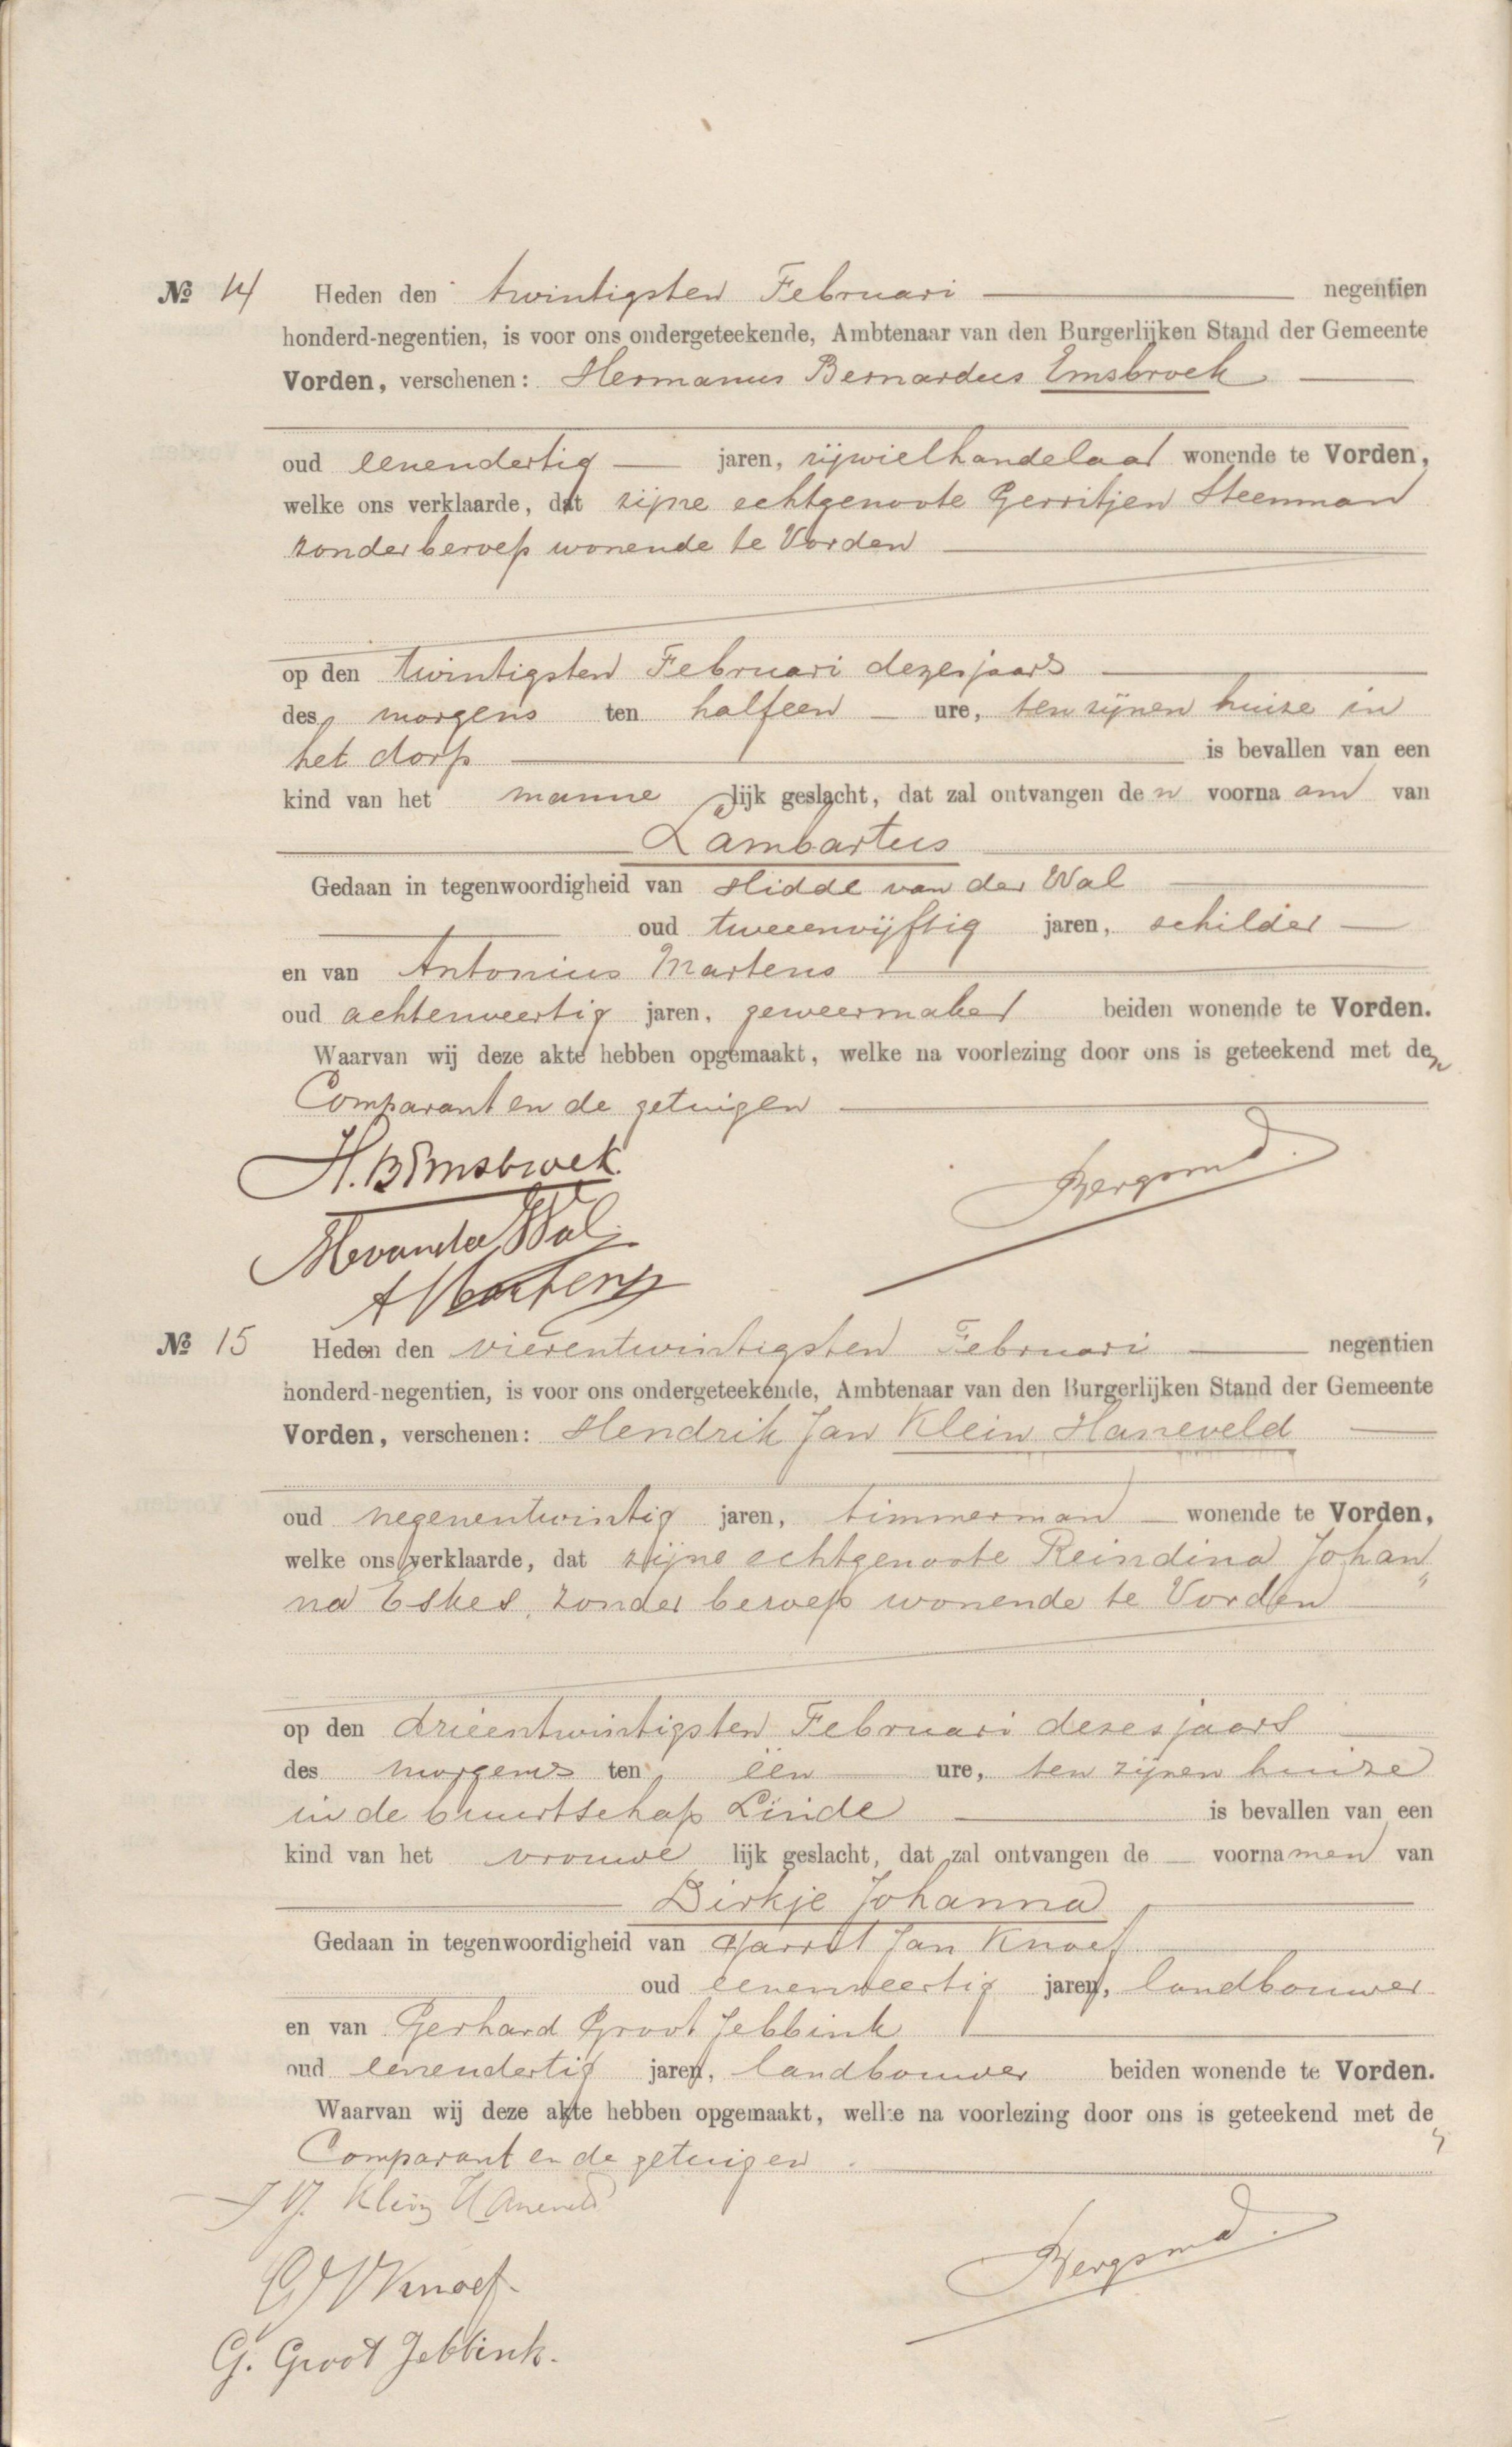 № 14 Heden den twintigsten Februari negentien
honderd-negentien, is voor ons ondergeteekende, Ambtenaar van den Burgerlijken Stand der Gemeente
Vorden, verschenen: Hermanus Bernardus Emsbroek
oud eenendertig jaren, rijwielhandelaar wonende te Vorden,
welke ons verklaarde, dat zijne echtgenoote Gerritjen Steenman
zonder beroep wonende te Vorden
op den twintigsten Februari dezes jaars
des morgens ten halfeen ure, ten zijnen huize in
het dorp is bevallen van een
kind van het manne lijk geslacht, dat zal ontvangen de n voorna am van
Lambartus
Gedaan in tegenwoordigheid van Hidde van der Wal
oud tweeenvijftig jaren, schilder
en van Antonius Martens
oud achtenveertig jaren, geweermaker beiden wonende te Vorden.
Waarvan wij deze akte hebben opgemaakt, welke na voorlezing door ons is geteekend met den
Comparant en de getuigen
H.B Emsbroek
H van der Wal
A Martens
№ 15 Heden den vierentwintigsten Februari negentien
honderd-negentien, is voor ons ondergeteekende, Ambtenaar van den Burgerlijken Stand der Gemeente
Vorden, verschenen: Hendrik Jan Klein Haneveld
oud negenentwintig jaren, timmerman wonende te Vorden,
welke ons verklaarde, dat zijne echtgenoote Reindina Johan„
na Eskes, zonder beroep wonende te Vorden
op den drieentwintigsten Februari dezes jaars
des morgens ten een ure, ten zijnen huize
in de buurtschap Linde is bevallen van een
kind van het vrouwe lijk geslacht, dat zal ontvangen de voorna men van
Dirkje Johanna
Gedaan in tegenwoordigheid van Garrit Jan Knoef
oud eenenveertig jaren, landbouwer
en van Gerhard Groot Jebbink
oud eenendertig jaren, landbouwer beiden wonende te Vorden.
Waarvan wij deze akte hebben opgemaakt, welke na voorlezing door ons is geteekend met den
Comparant en de getuigen
Klein Haneveld
G J Knoef
G. Groot Jebbink.